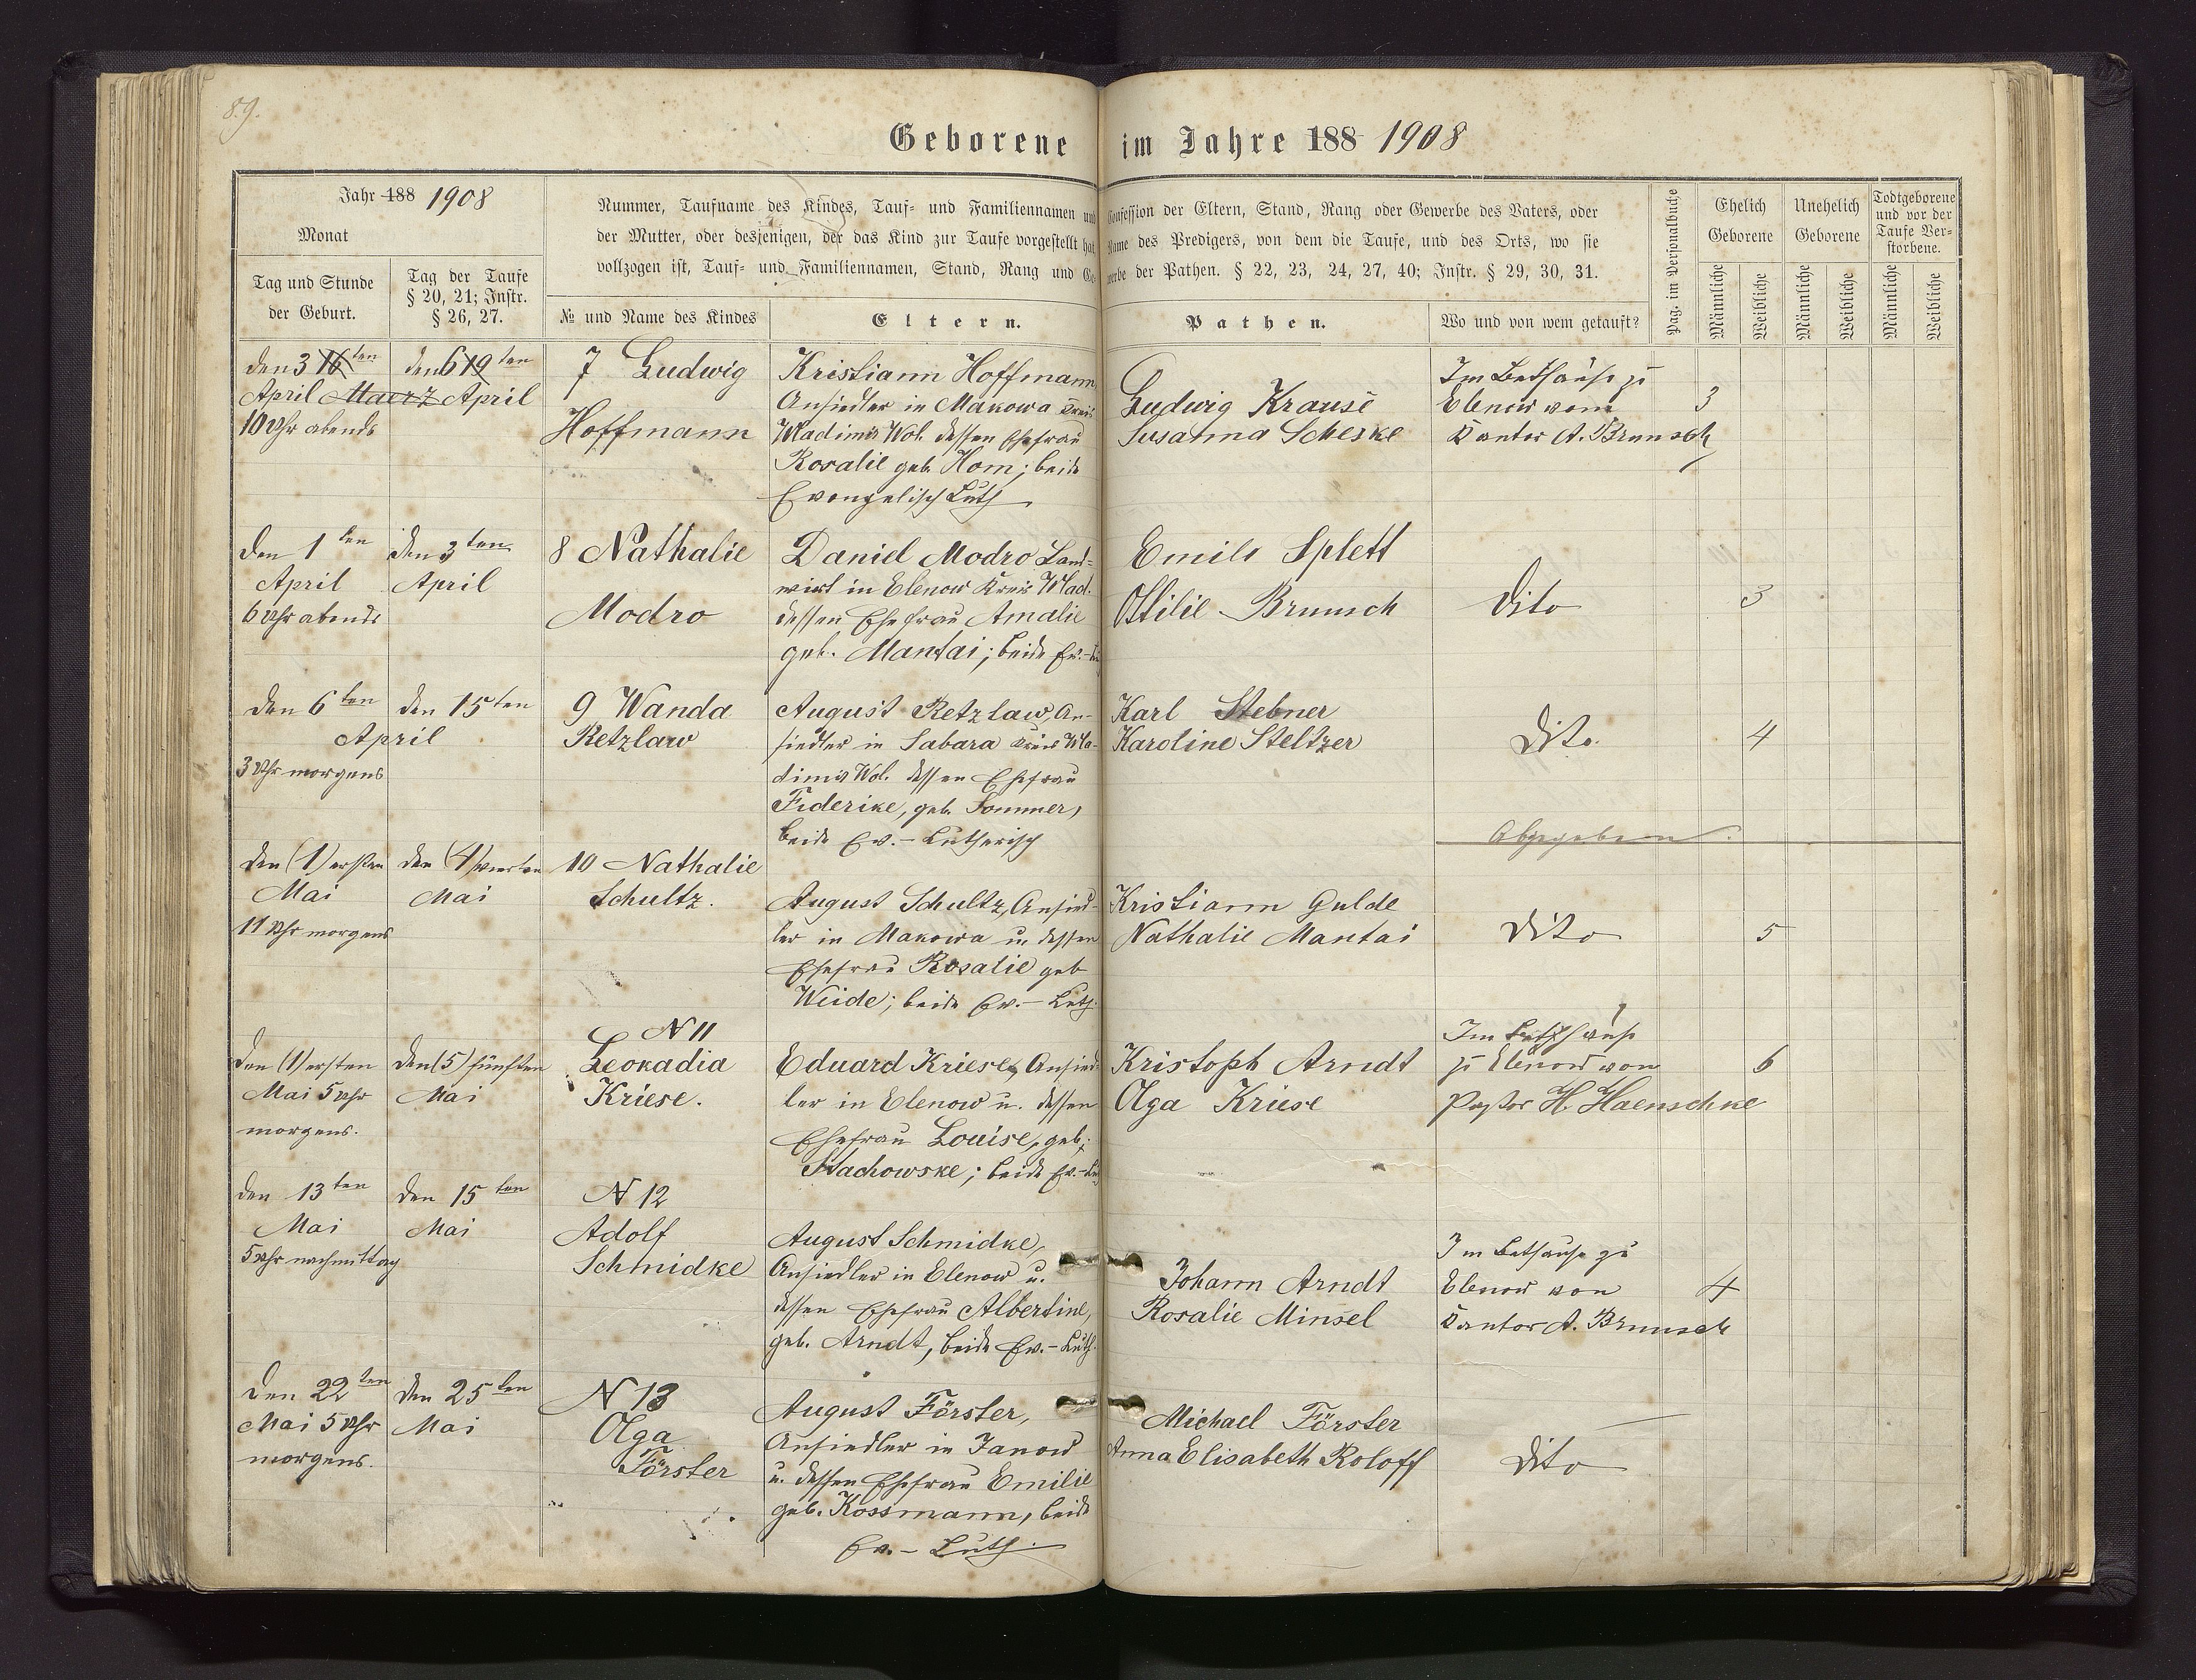 89.
Geborene im Jahre 188 1908
Jahr 188 1908
Monat
Tag und Stunde
der Geburt.
Tag der Taufe
§ 20, 21; Instr.
§ 26, 27.
Nummer, Taufname des Kindes, Tauf- und Familiennamen und Confession der Eltern, Stand, Rang oder Gewerbe des Vaters, oder
der Mutter, oder desjenigen, der das Kind zur Taufe vorgestellt hat, Name des Predigers, von dem die Taufe, und des Orts, wo sie
vollzogen ist, Tauf- und Familiennamen, Stand, Rang und Gewerbe der Pathen. § 22, 23, 24, 27, 40; Instr. § 29, 30, 31.
№ und Name des Kindes
Eltern.
Pathen.
Wo und von wem getauft?
Pag. im Personalbuche
Ehelich
Geborene
Unehelich
Geborene
Todtgeborene
und vor der
Taufe Ver-
storbene.
Männliche
Weibliche
Männliche
Weibliche
Männliche
Weibliche
den 3 16ten
April Maerz
10 Uhr abends
den 6 19 ten
April
7 Ludwig
Hoffmann
Kristiann Hoffmann,
Ansiedler in Makowa Kreis
Wladimir Wol. dessen Ehefrau
Rosalie geb. Horn; beide
Evangelisch Luth
Ludwig Krause
Susanna Scheske
Im Bethause zu
Elenow vom
Kantor A. Brunsch
3
den 1 ten
April
6 Uhr abends
den 3 ten
April
8 Nathalie
Modro
Daniel Modro Land-
wirt in Elenow Kreis Wlad.
dessen Ehefrau Amalie
geb. Mantai; beide Ev.-
Emile Splett
Ottilie Brunsch
Dito
3
den 6 ten
April
3 Uhr morgens
den 15 ten
9 Wanda
Retzlaw
August Retzlaw, An-
siedler in Sabara Kreis Wla-
dimir Wol. dessen Ehefrau
Fiderike, geb. Sommer,
beide Ev.- Lutherisch
Karl Stebner
Karoline Steltzer
Dito.
4
Abgegeben.
den (1) ersten
Mai
11 Uhr morgens
den (4) vierten
Mai
10 Nathalie
Schultz.
August Schultz, Ansied-
ler in Makowa u. dessen
Ehefrau Rosalie geb
Weide; beide Ev.- Luth.
Kristiann Gulde
Nathalie Mantai
Dito
5
den (1) ersten
Mai 5 Uhr
morgens.
den (5) fünften
Mai
N 11
Leokadia
Kriese.
Eduard Kriese, Ansied-
ler in Elenow u. dessen
Ehefrau Louise, geb.
Stachowske; beide Ev.-
Kristoph Arndt
Olga Kriese
Im Bethhause
zu Elenow von
Pastor H. Haenschke
6
den 13 ten
Mai
5 Uhr nachmittag
den 15 ten
Mai
N 12
Adolf
Schmidke
August Schmidke,
Ansiedler in Elenow u.
dessen Ehefrau Albertine,
geb. Arndt, beide Ev.- Luth.
Johann Arndt
Rosalie Minsel
Im Bethause zu
Elenow von
Kantor A. Brunsch
4
den 22 ten
Mai 5 Uhr
morgens.
den 25 ten
Mai
N 13
Olga
Förster
August Förster,
Ansiedler in Janow
u. dessen Ehefrau Emilie
geb. Kossmann, beide
Ev.- Luth.
Michael Förster
Anna Elisabeth Roloff
Dito